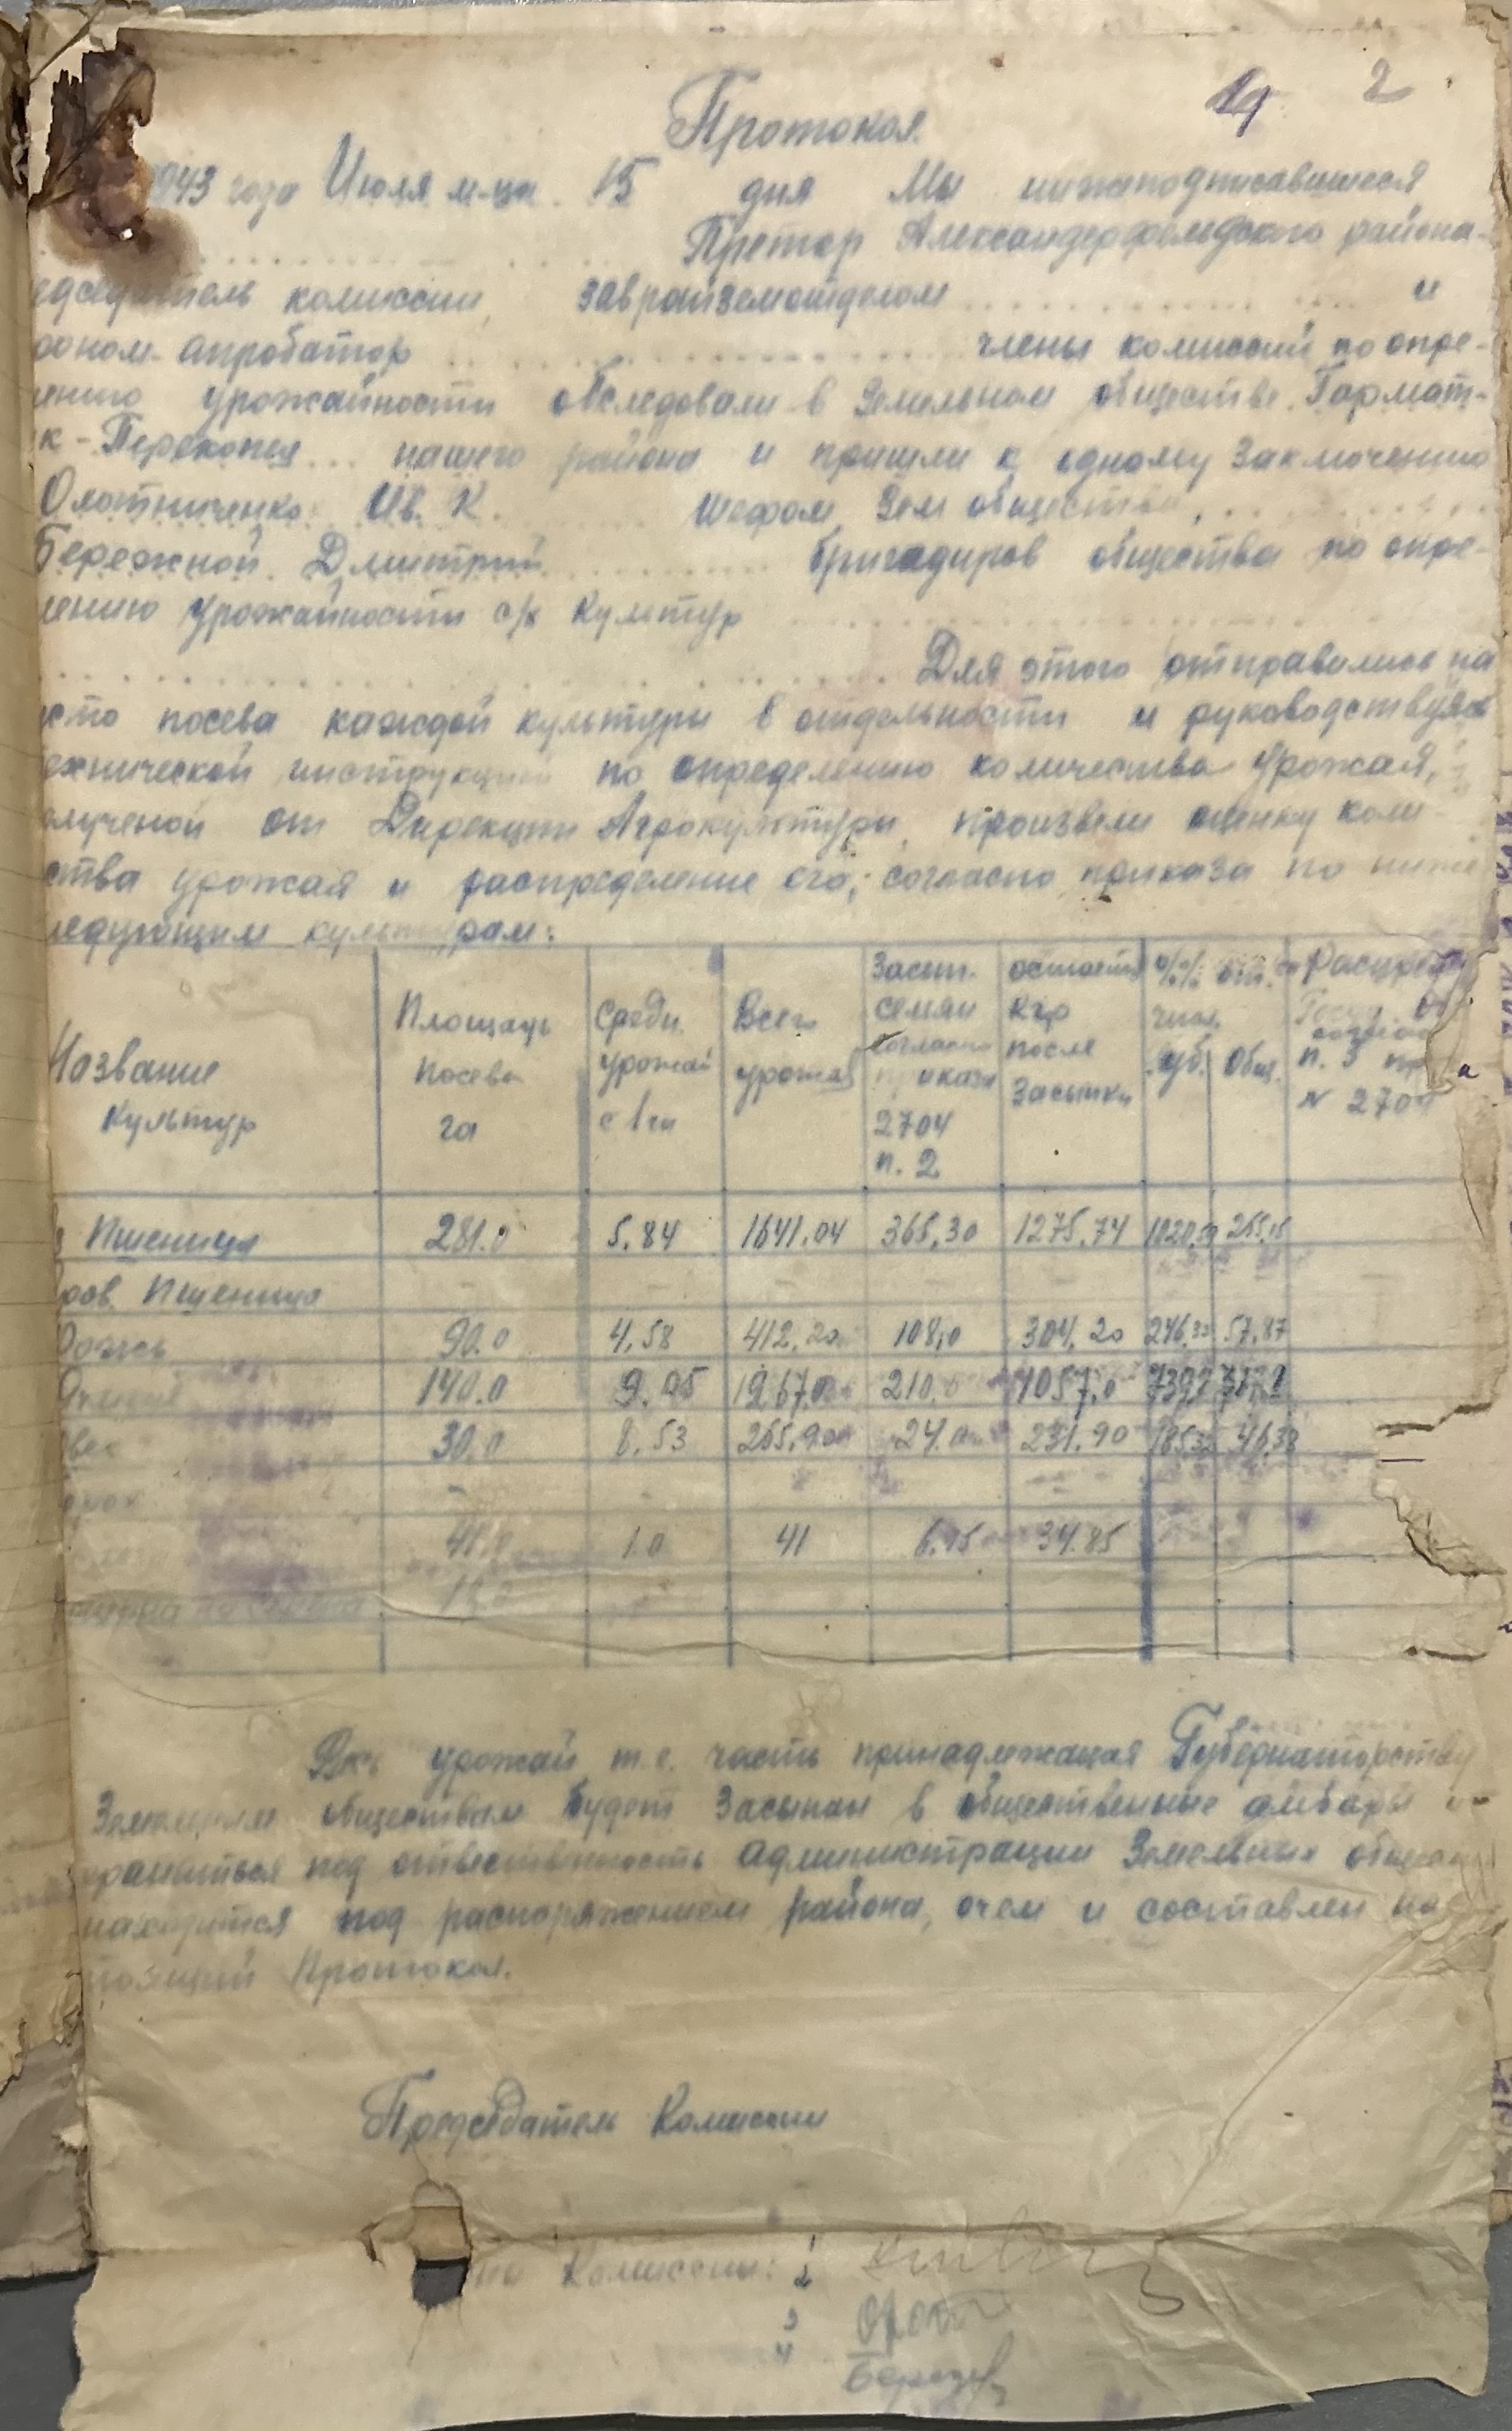 2
Протокол
1943 года Июля м-ца 15 дня Мы нижеподписавшиеся
Претор Александерфельдского района
едседатель комиссии, заврайземотделом и
роном-апробатор члены комиссий по опре-
ению урожайности обследовали в Земельном обществе Гармат-
к-Перекопея нашего района и пришли к одному заключению
Охотниченко Ив. К. шефом Зем общества,
Бережной Дмитрий бригадиров общества по опре-
лению урожайности с/х культур
Для этого отправились на
сто посева каждой культуры в отдельности и руководствуяс
ехнической инструкцией по определению количества урожая,
олученой от Дирекции Агрокультуры, произвели оценку коли-
ства урожая и распределение его, согласно приказа по ниже
ледующим культурам:
Название Культур
Площадь посева га
Средн. урожай с 1 га
Всего урожая
Засып. семян согласно приказа 2704 п. 2
остается кгр после засыпки
%% от. числ.
Губ. Общ.
Распреде
Госуд.
п. 3 пр
N 2704
Пшеница 281.0 5.84 1641.04 365,30 1275,74 1020,59 255,15
ров. Пшеница — — — — —
Рожь 90.0 4,58 412,20 108,0 304,20 246,33 57,87
Ячмень 140.0 9.05 1267.0 210.0 1057,0
Овес 30.0 8.53 255,90 24.0 231.90 185,52 46,38
41.0 1.0 41 6.15 34.85
Весь урожай т.е. часть принадлежащая Губернаторству
Земельным обществам будет засыпан в общественные амбары и
храниться под ответственность администрации Земельных общест
находится под распоряжением района, о чем и составлен нас
тоящий Протокол.
Председатель Комиссии
ны Комиссии: 1
2
3
4